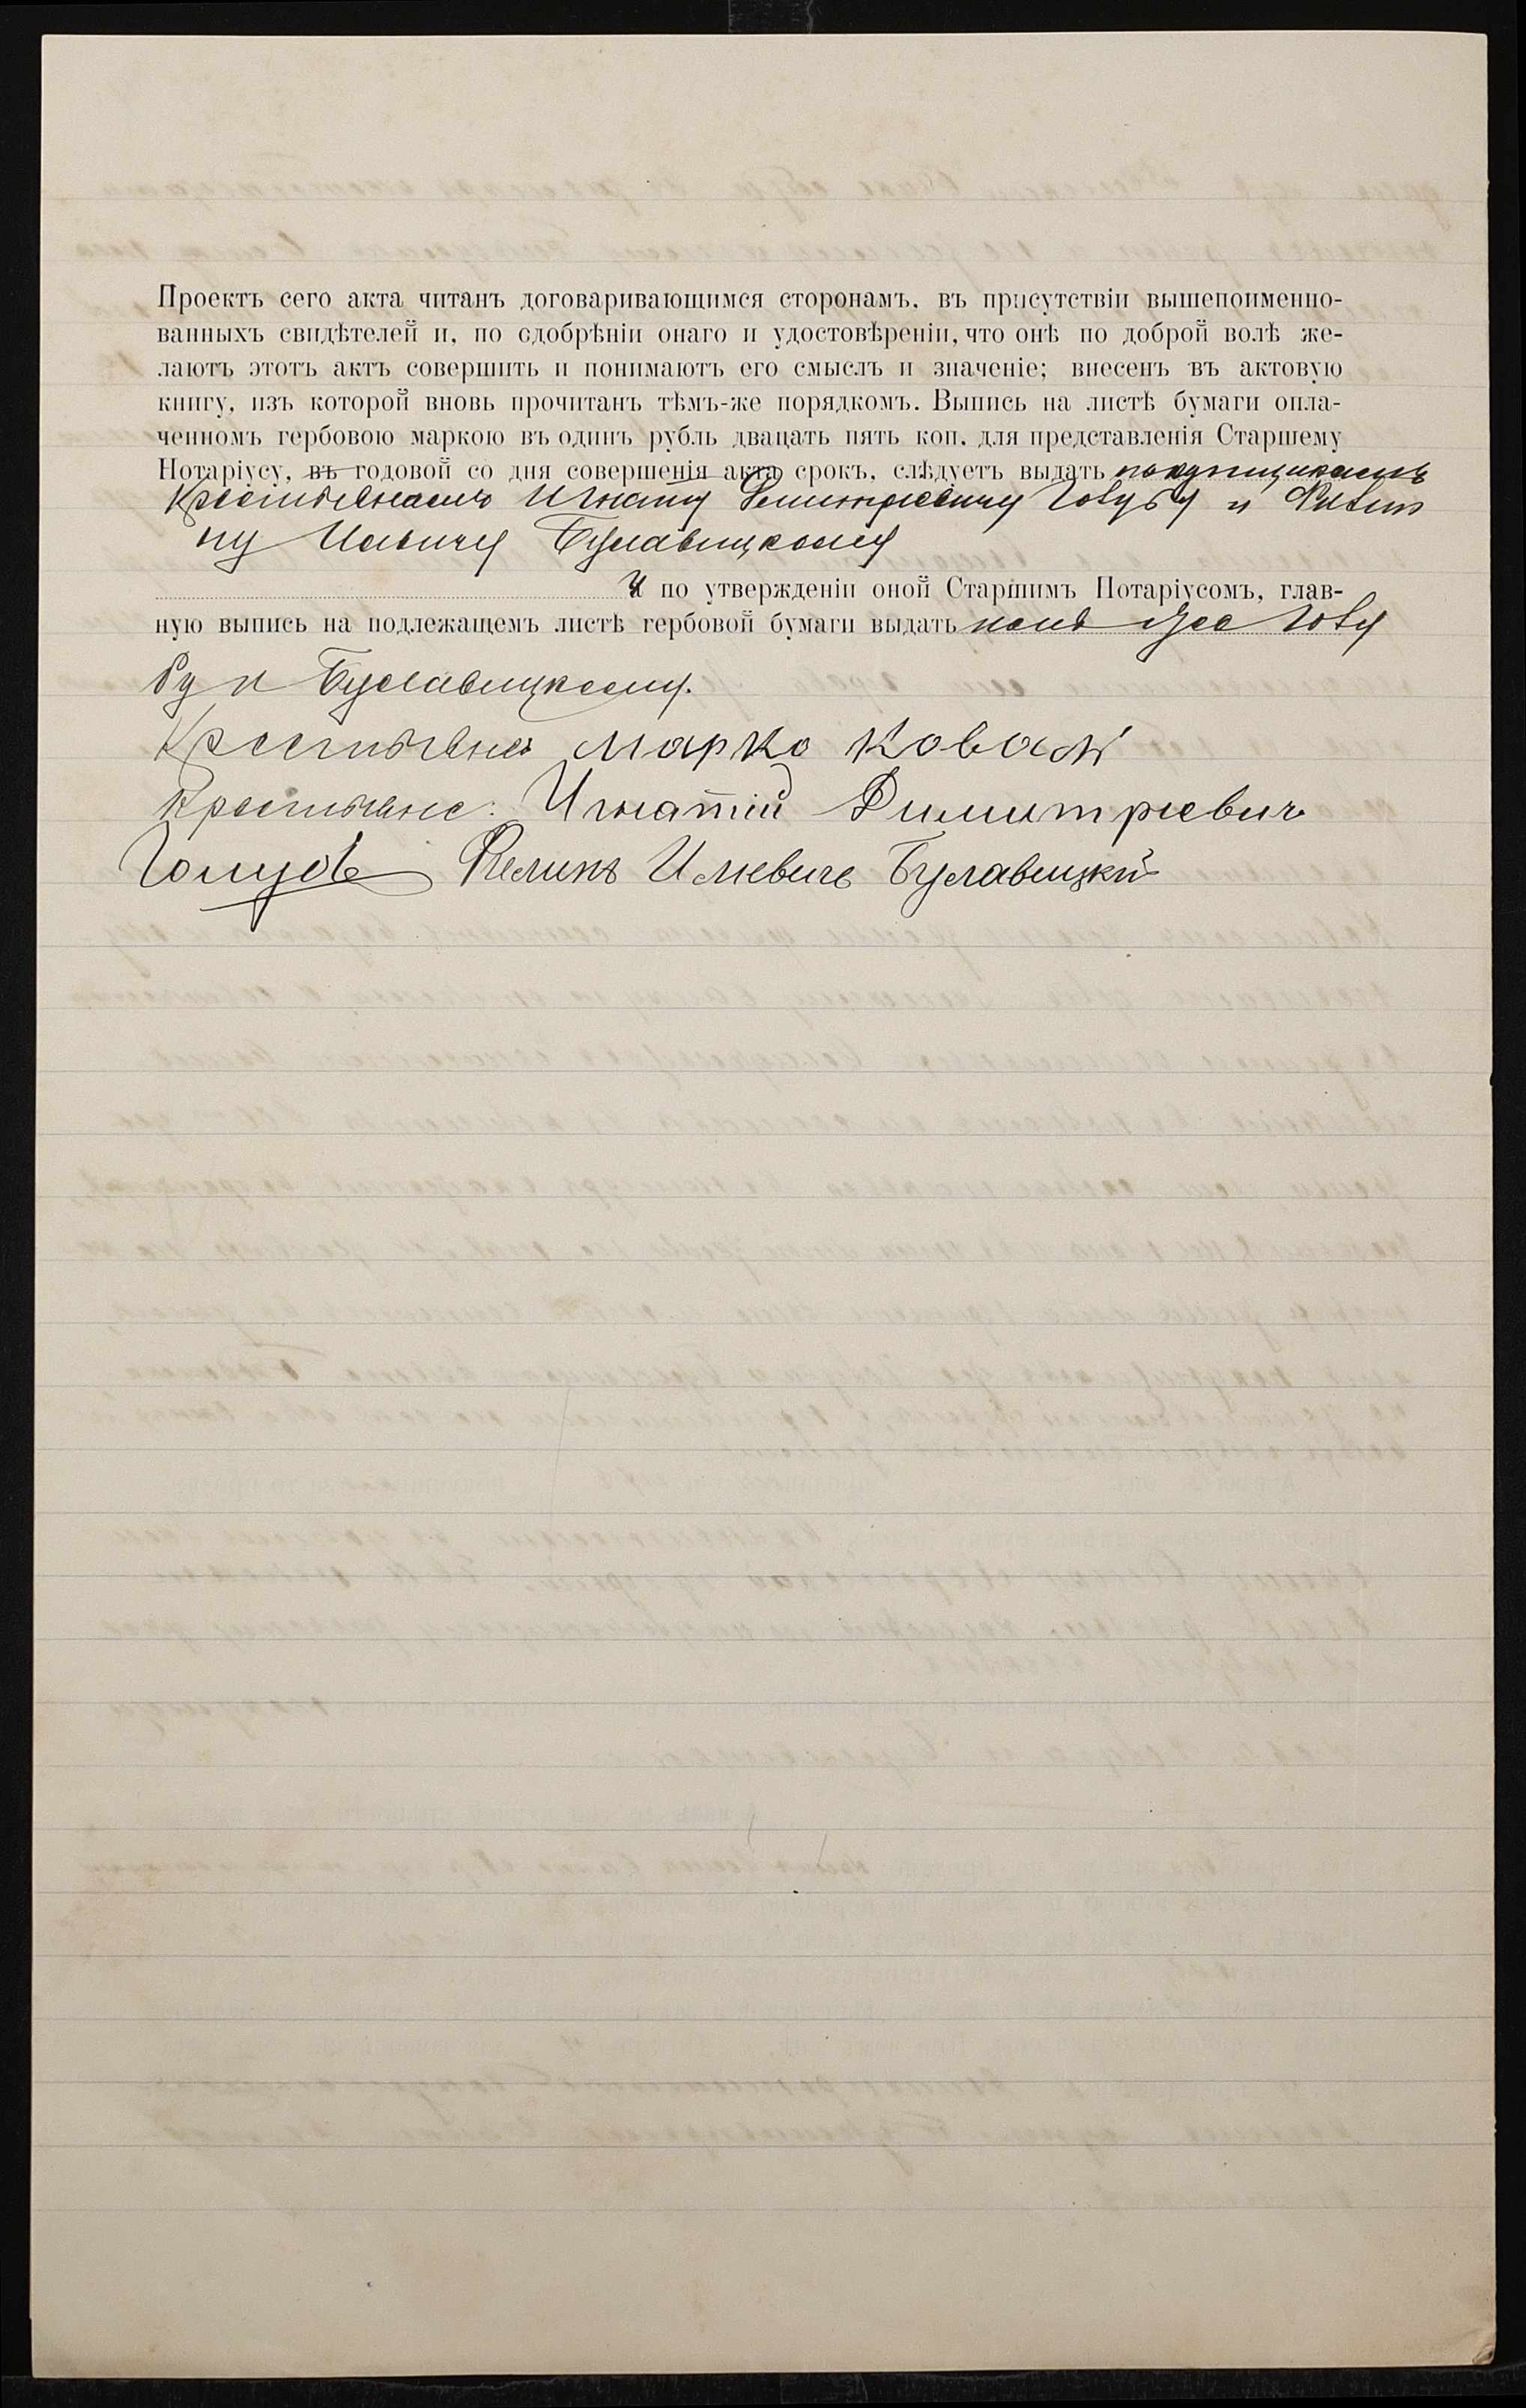 Проектъ сего акта читанъ договаривающимся сторонамъ, въ присутствіи вышепоимено-
ванныхъ свидѣтелей и, по одобрѣніи онаго и удостовѣреніи, что онѣ по доброй волѣ же-
лаютъ этотъ актъ совершить и понимаютъ его смыслъ и значеніе; внесенъ въ актовую
книгу, изъ которой вновь прочитанъ тѣмъ-же порядкомъ. Выпись на листѣ бумаги опла-
ченномъ гербовою маркою въ одинъ рубль двацать пять коп. для представленія Старшему
Нотаріусу, въ годовой со дня совершенія акта срокъ, слѣдуетъ выдать покупщикамъ
Крестьянамъ Игнату Димитріевичу Голубу и Филип
пу Ильичу Булавицкому
И по утвержденіи оной Старшимъ Нотаріусомъ, глав-
ную выпись на подлежащемъ листѣ гербовой бумаги выдать имъ же Голу
бу и Булавицкому.
Крестьянинъ Марко Коваль
Крестьяне: Игнатій Димитриевич
Голубъ Филипъ Илиевичъ Булавицкий